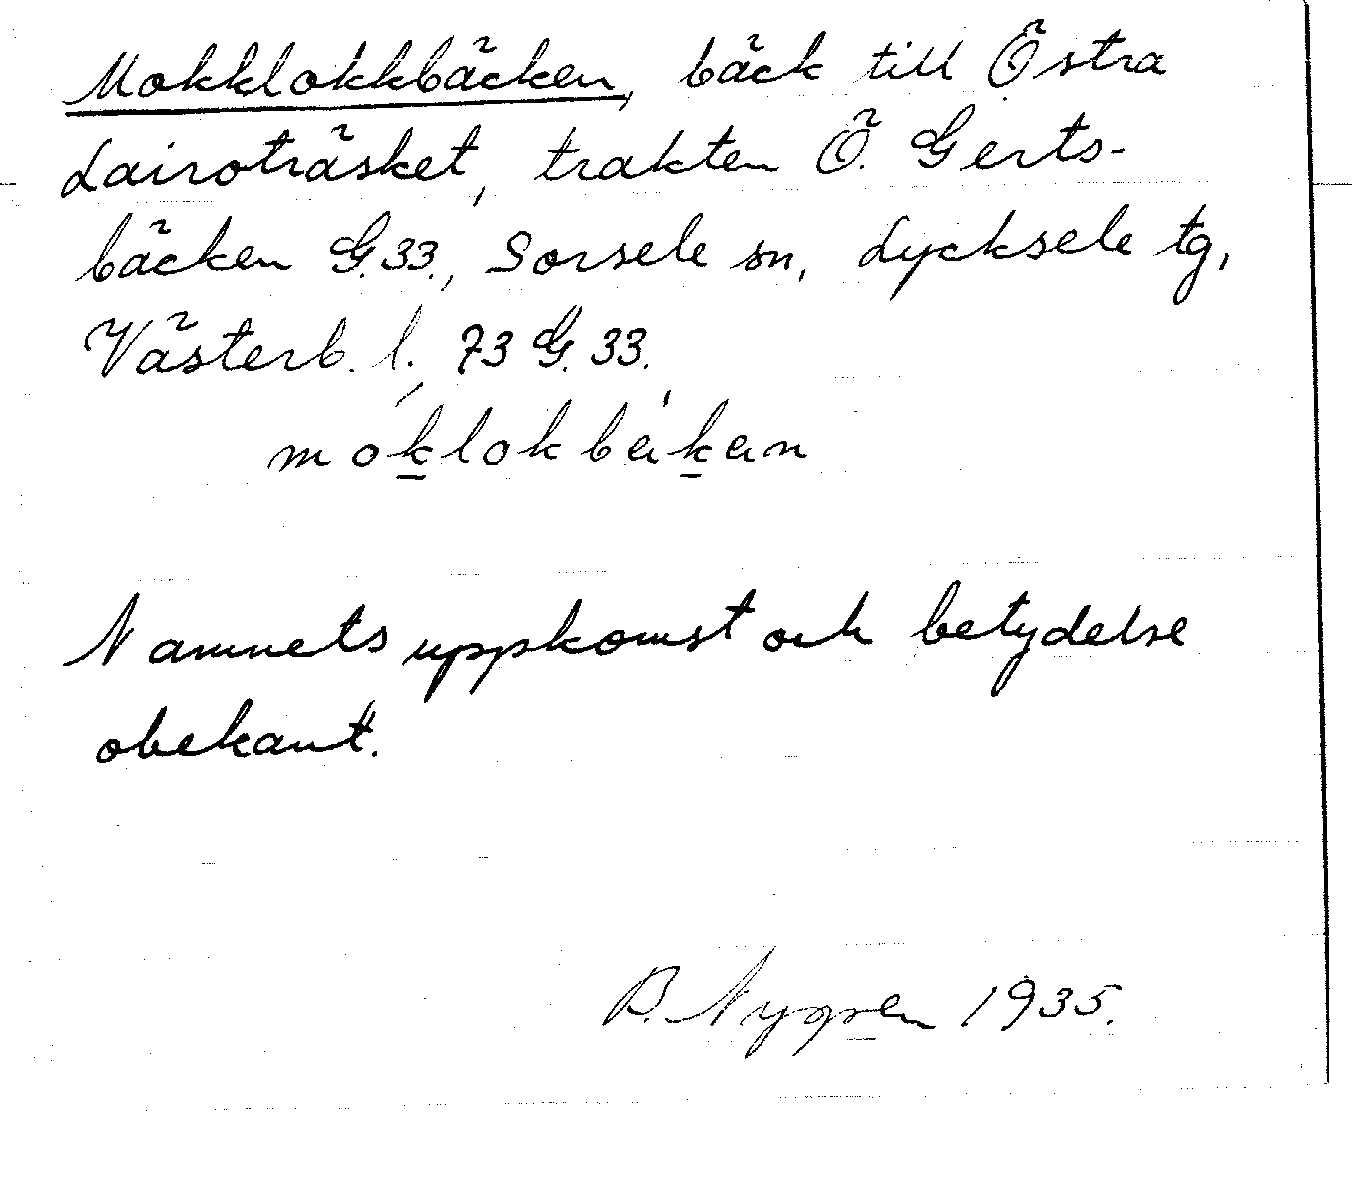 Mokklokkbäcken, bäck till Östra
Lairoträsket, trakten Ö. Gerts-
bäcken G.33., Sorsele sn, Lycksele tg,
Västerb. l. 73 G. 33.
moklokbäkan
Namnets uppkomst och betydelse
obekant.
B. Nygren 1935.